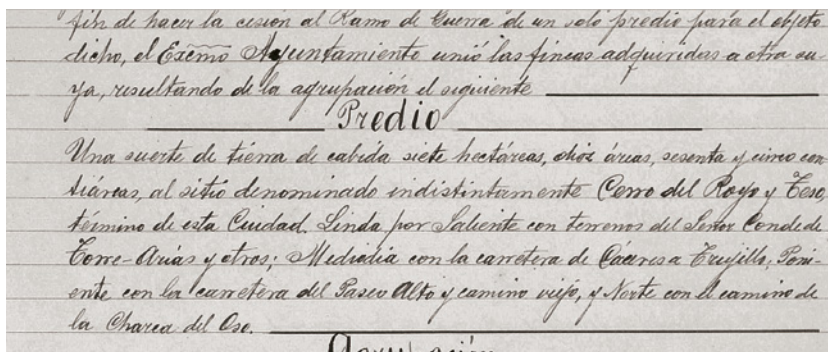 fin de hacer la cesión al Ramo de Guerra de un solo predio para el objeto
dicho, el Excmo Ayuntamiento unió las fincas adquiridas a otra su-
ya, resultando de la agrupación el siguiente
Predio
Una suerte de tierra de cabida siete hectáreas, diez áreas, sesenta y cinco cen
tiáreas, al sitio denominado indistintamente Cerro del Royo y Teso,
término de esta Ciudad. Linda por Saliente con terrenos del Señor Conde de
Torre-Arias y otros; Mediodia con la carretera de Cáceres a Trujillo; Poni-
ente con la carretera del Paseo Alto y camino viejo, y Norte con el camino de
la Charca del Oso.
Agrupación